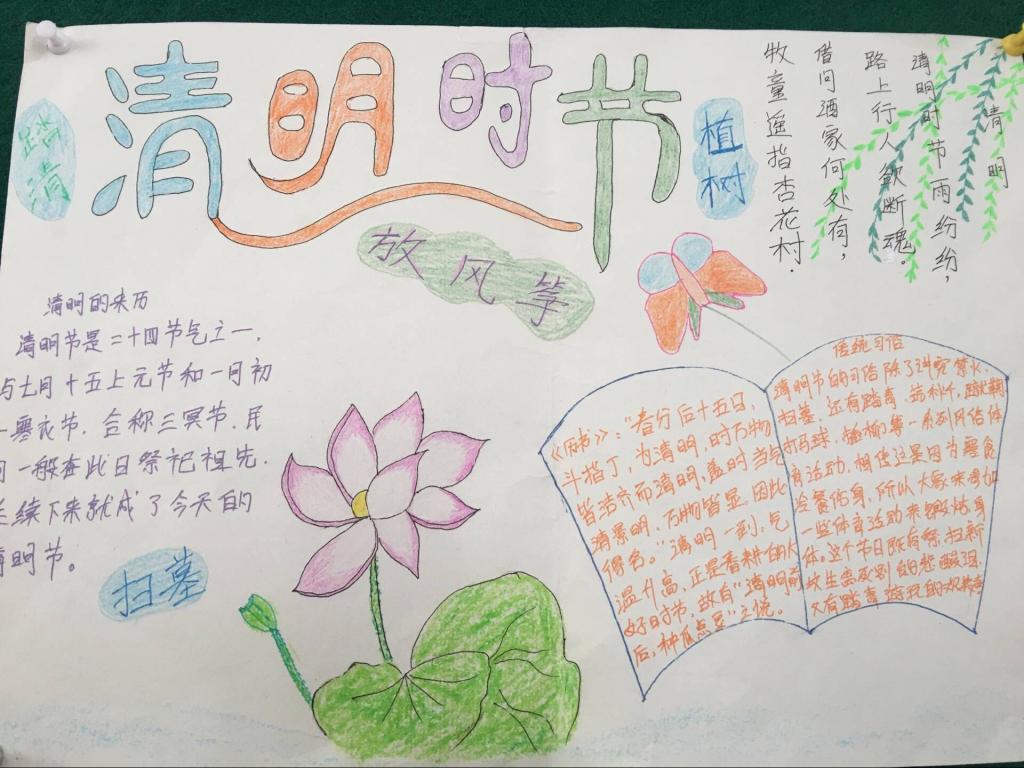 清明时节
踏清
植树
放风筝
扫墓
清明
清明时节雨纷纷，
路上行人欲断魂。
借问酒家何处有，
牧童遥指杏花村.
清明的来历
清明节是二十四节气之一，
与七月十五上元节和一月初
一寒衣节.合称三冥节.民
间一般在此日祭祀祖先.
延续下来就成了今天的
清明节。
《历书》："春分后十五日，
斗指丁，为清明，时万物
皆洁齐而清明，盖时当气
清景明，万物皆显，因此
得名。"清明一到，气
温升高，正是春耕的大
好日时节，故有"清明前
后，种瓜点豆"之说。
传统习俗
清明节的习俗除了讲究禁火.
扫墓，还有踏青、荡秋千、蹴鞠
打马球、插柳等一系列风俗体
育活动.相传这是因为寒食
冷餐伤身，所以大家来参加
一些体育活动来锻炼身
体。这个节日既有祭扫新
坟生离死别的悲酸泪，
又有踏青游玩的欢笑声